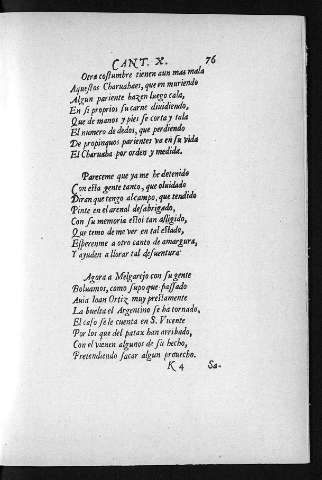 CANT. X. 76
Otra costumbre tienen aun mas mala
Aquestos Charuahaes, que en muriendo
Algun pariente hazen luego cala,
En si proprios su carne diuidiendo,
Que de manos y pies se corta y tala
El numero de dedos, que perdiendo
De propinquos parientes va en su vida
El Charuaha por orden y medida.
Pareceme que ya me he detenido
Con esta gente tanto, que oluidado
Diran que tengo al campo, que tendido
Pinte en el arenal desabrigado,
Con su memoria estoi tan afligido,
Que temo de me ver en tal estado,
Esperenme a otro canto de amargura,
Y ayuden a llorar tal desuentura.
Agora a Melgarejo con su gente
Boluamos, como supo que passado
Auia Ioan Ortiz muy prestamente
La buelta el Argentino se ha tornado,
El caso se le cuenta en S. Vicente
Por los que del patax han arribado,
Con el vienen algunos de su hecho,
Pretendiendo sacar algun prouecho.
K 4 Sa-